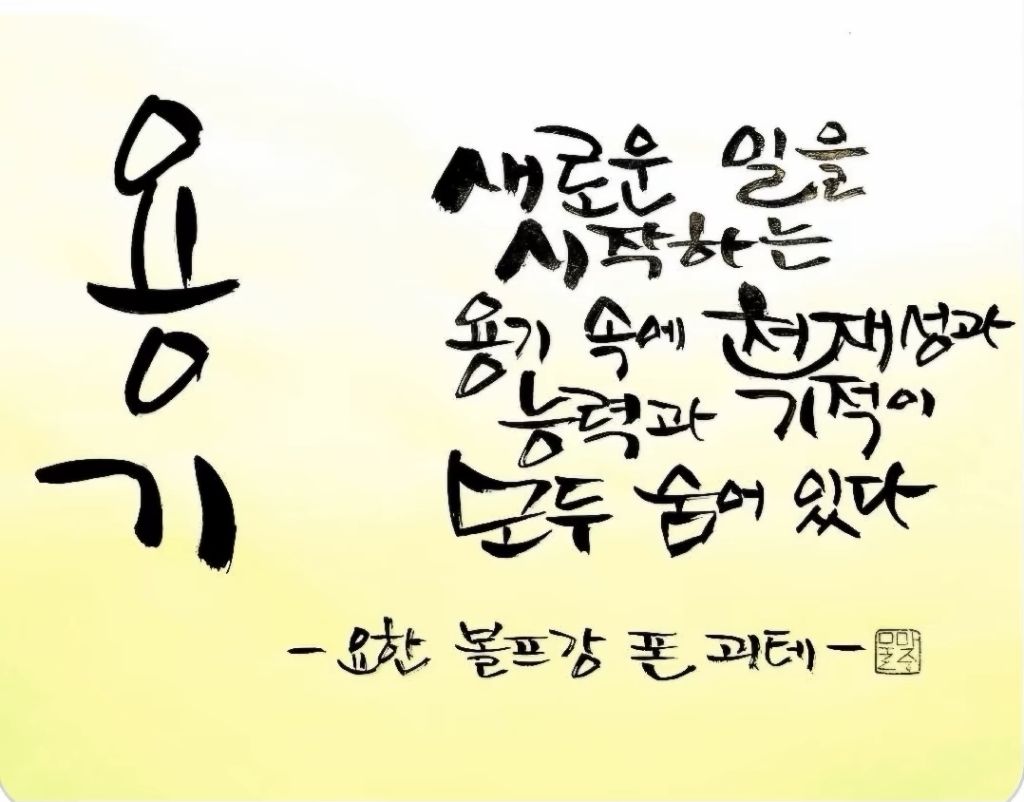 용기
새로운 일을
시작하는
용기 속에 천재성과
능력과 기적이
모두 숨어 있다
- 요한 볼프강 폰 괴테 -